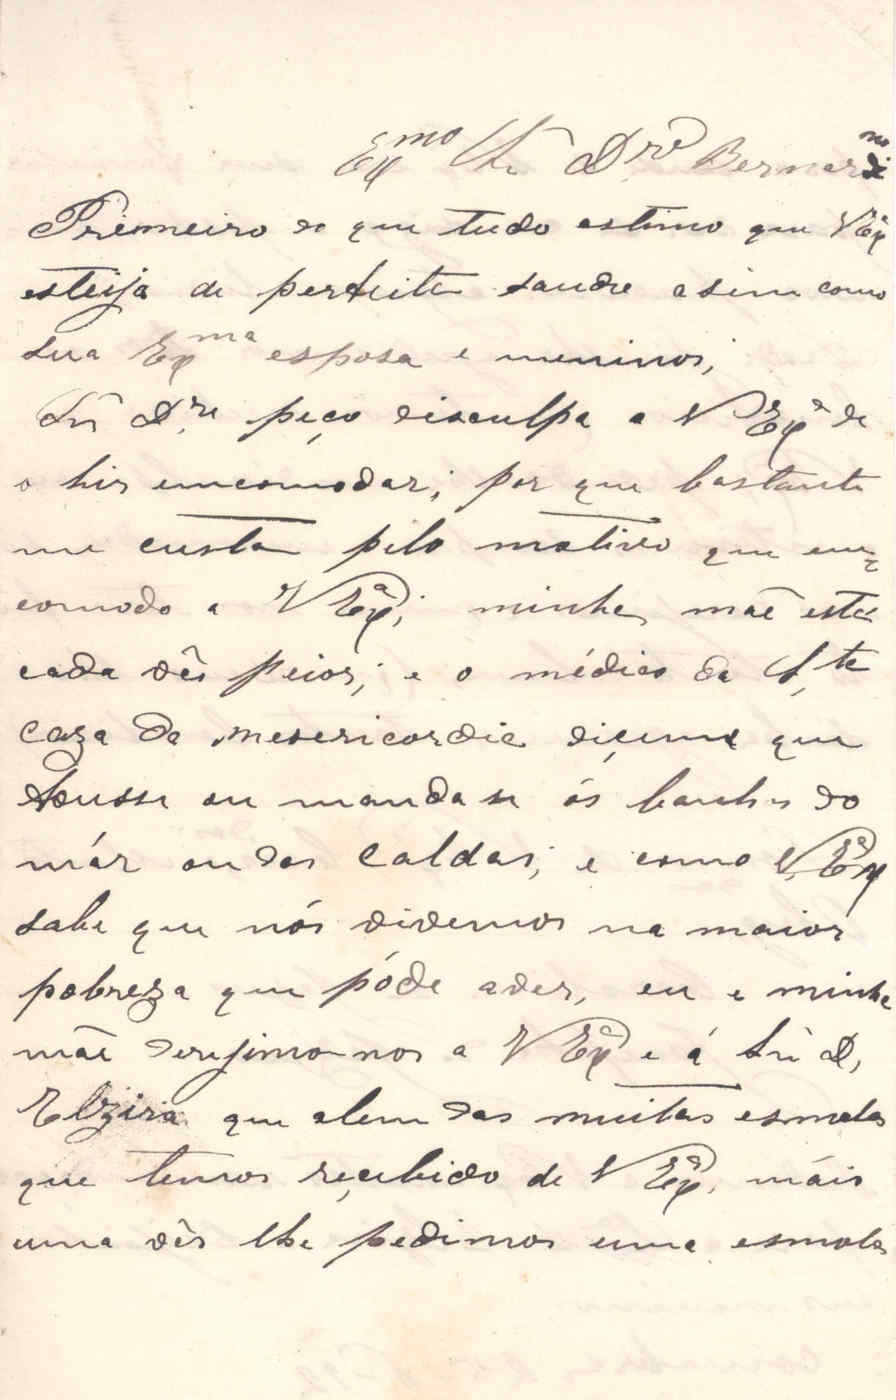 Exmo Snr Dre Bernardino
Primeiro do que tudo estimo que V Exa
esteija de perfeita saudre asim como
sua Exma esposa e meninos;
Snr Dre peço disculpa a V Exa de
o hir emcomodar; por que bastante
me custa pelo motivo que em=
comodo a V Exa; minha mãe está
cada vês peior; e o médico da Sta
caza da mesericordia diçume que
fousse ou mandase ós banhos do
már ou das Caldas; e como V, Exa
sabe que nós vivemos na maior
pobreza que póde aver, eu e minha
mãe derejimo-nos a V Exa e á Snr D,
Elzira que alem das muitas esmolas
que temos reçebido de V Exa, máis
uma vês lhe pedimos uma esmola